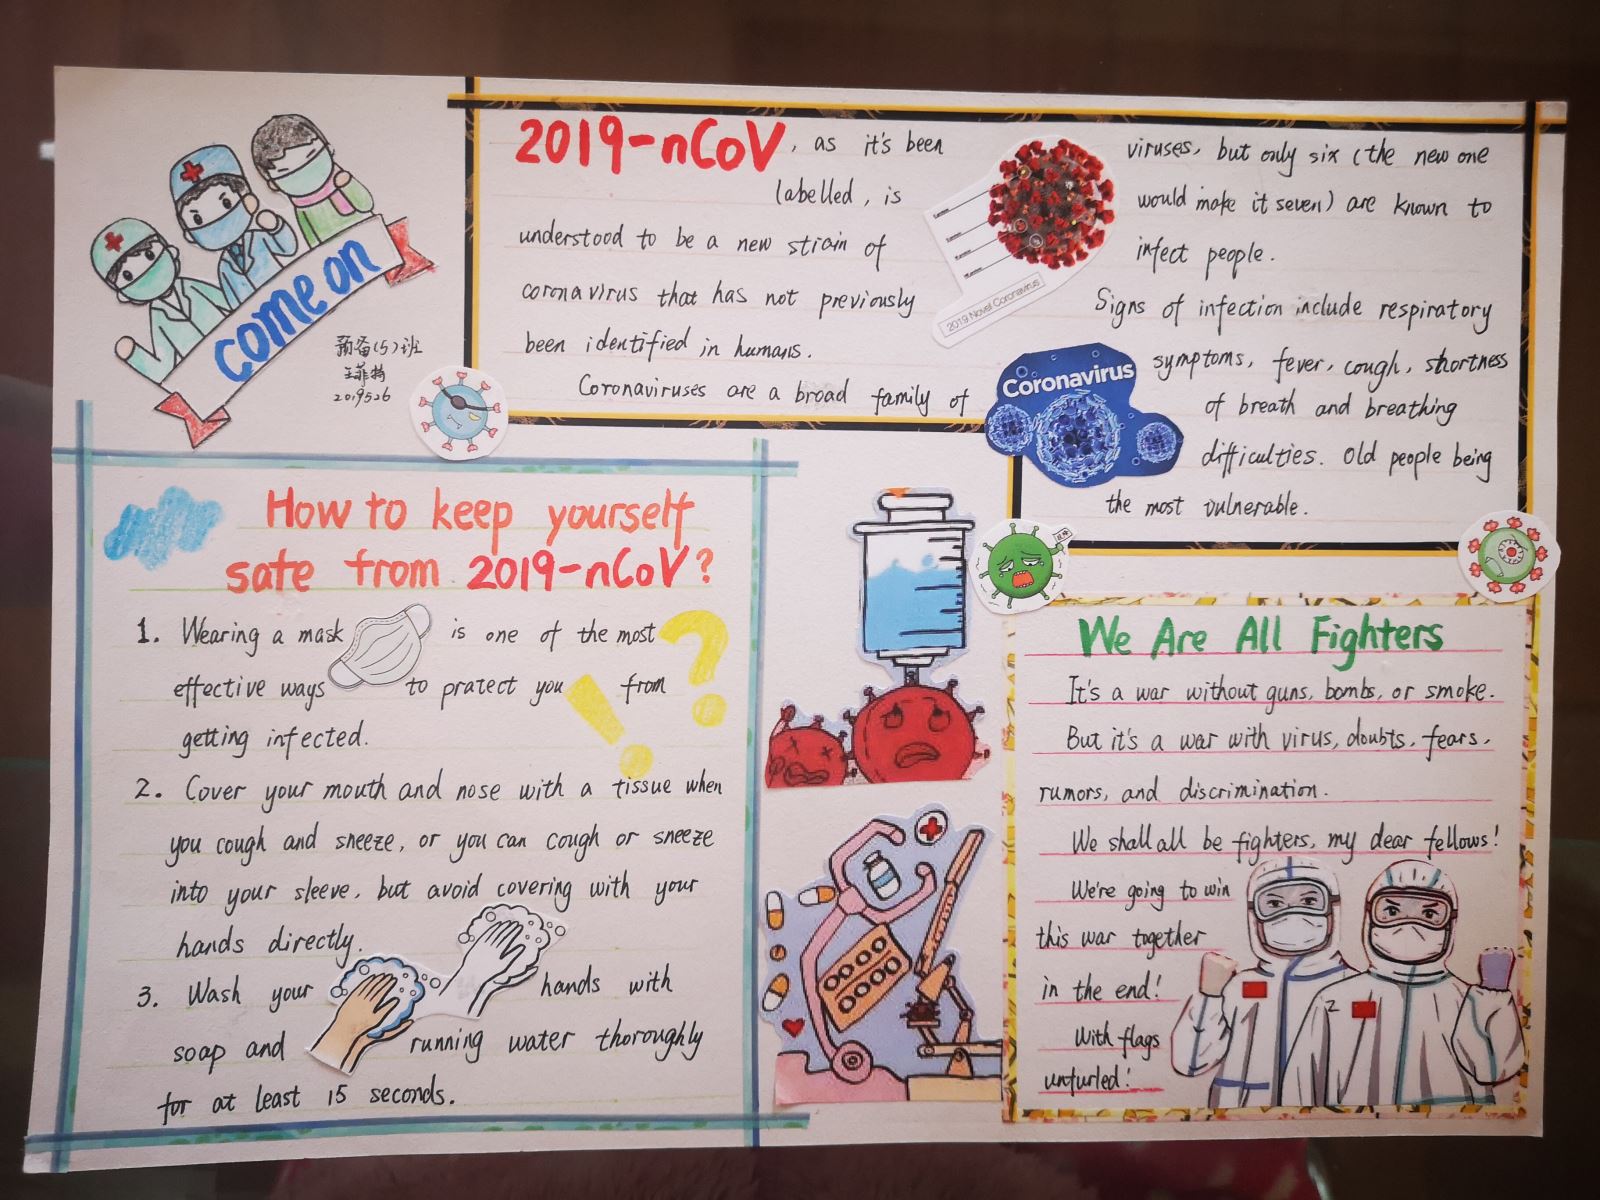 come on
预备(5)班
2019526
2019-nCoV, as it's been
labelled, is
understood to be a new strain of
coronavirus that has not previously
been identified in humans.
Coronaviruses are a broad family of
viruses, but only six (the new one
would make it seven) are known to
infect people.
Signs of infection include respiratory
symptoms, fever, cough, shortness
of breath and breathing
difficulties. Old people being
the most vulnerable.
2019 Novel Coronavirus
Coronavirus
How to keep yourself
safe from 2019-nCoV?
1. Wearing a mask is one of the most
effective ways to protect you from
getting infected.
2. Cover your mouth and nose with a tissue when
you cough and sneeze, or you can cough or sneeze
into your sleeve, but avoid covering with your
hands directly.
3. Wash your hands with
soap and running water thoroughly
for at least 15 seconds.
? !
We Are All Fighters
It's a war without guns, bombs, or smoke.
But it's a war with virus, doubts, fears,
rumors, and discrimination.
We shall all be fighters, my dear fellows!
We're going to win
this war together
in the end!
With flags
unfurled!